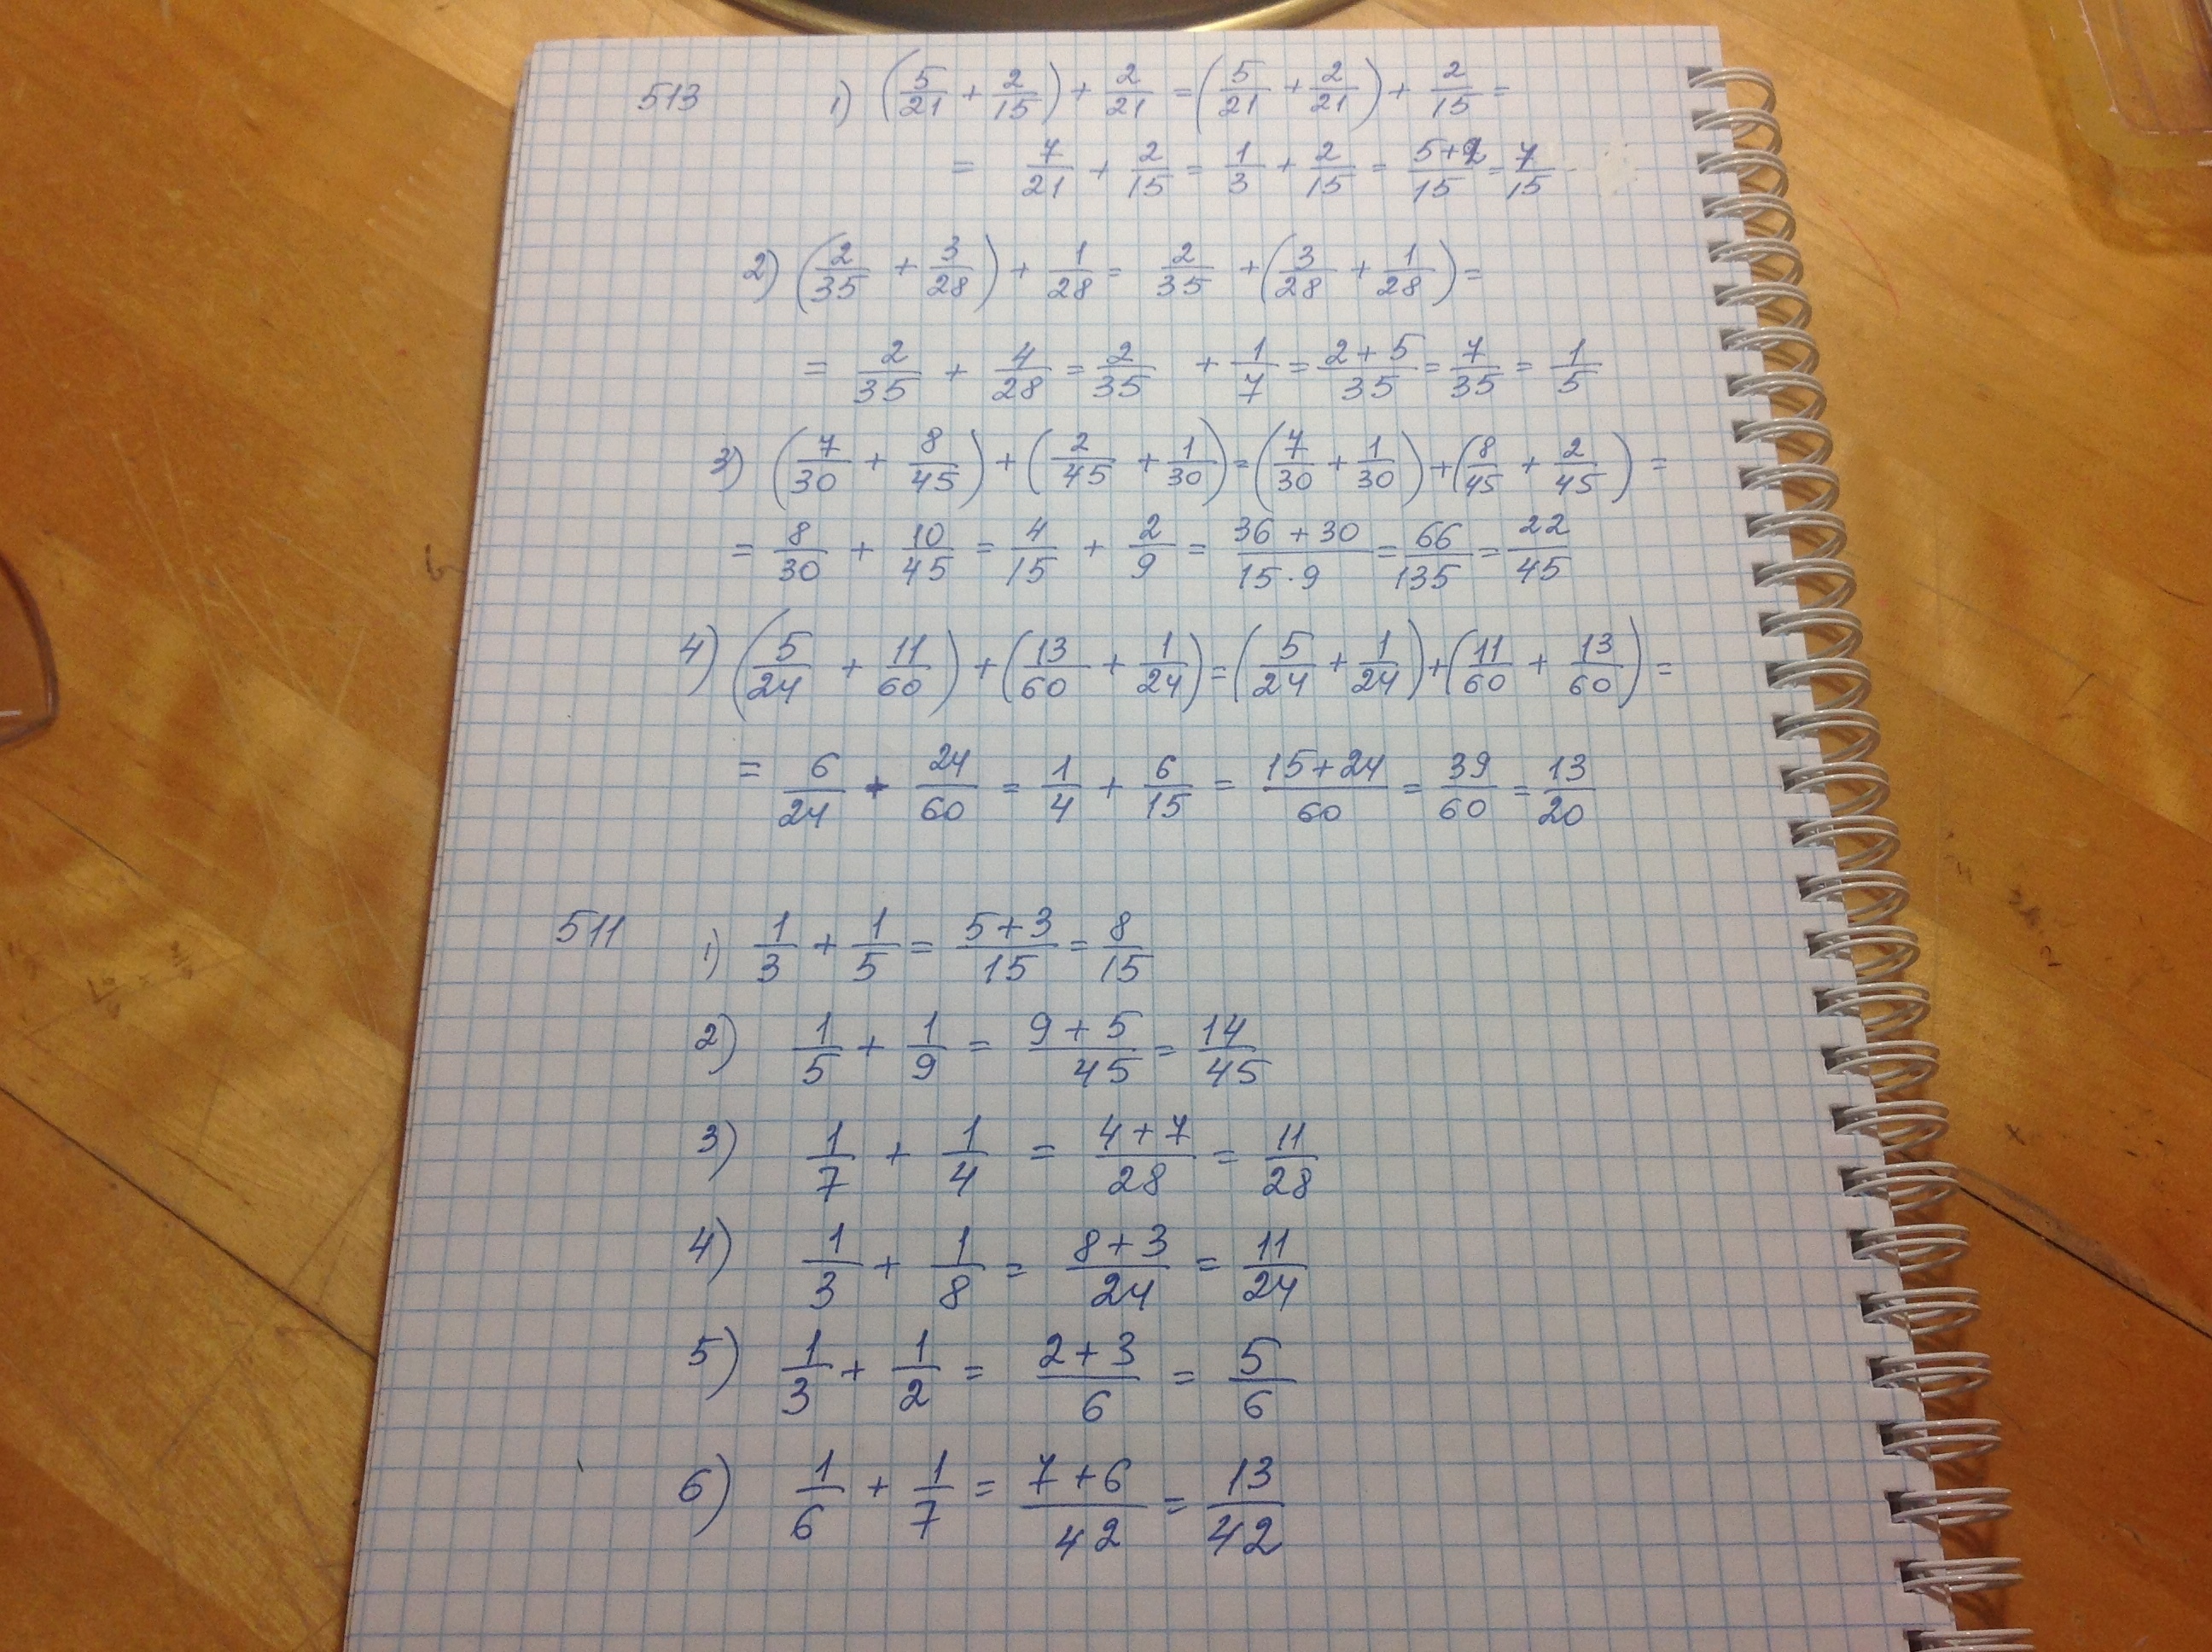 513 1) (5/21 + 2/15) + 2/21 = (5/21 + 2/21) + 2/15 =
= 7/21 + 2/15 = 1/3 + 2/15 = (5+2)/15 = 7/15
2) (2/35 + 3/28) + 1/28 = 2/35 + (3/28 + 1/28) =
= 2/35 + 4/28 = 2/35 + 1/7 = (2+5)/35 = 7/35 = 1/5
3) (7/30 + 8/45) + (2/45 + 1/30) = (7/30 + 1/30) + (8/45 + 2/45) =
= 8/30 + 10/45 = 4/15 + 2/9 = (36+30)/(15·9) = 66/135 = 22/45
4) (5/24 + 11/60) + (13/60 + 1/24) = (5/24 + 1/24) + (11/60 + 13/60) =
= 6/24 + 24/60 = 1/4 + 6/15 = (15+24)/60 = 39/60 = 13/20
511 1) 1/3 + 1/5 = (5+3)/15 = 8/15
2) 1/5 + 1/9 = (9+5)/45 = 14/45
3) 1/7 + 1/4 = (4+7)/28 = 11/28
4) 1/3 + 1/8 = (8+3)/24 = 11/24
5) 1/3 + 1/2 = (2+3)/6 = 5/6
6) 1/6 + 1/7 = (7+6)/42 = 13/42